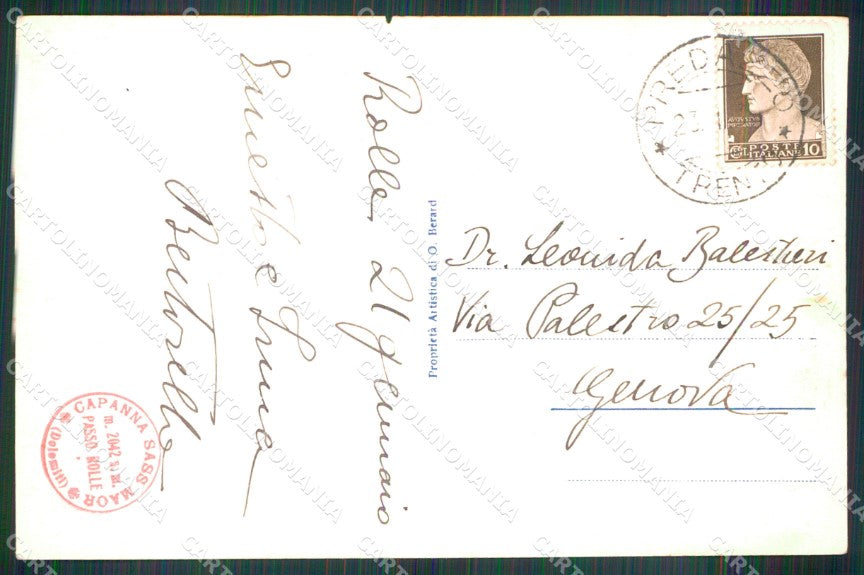 Rolle 21 gennaio
Ernesto e Irma
Bertorello
Proprietà Artistica di O. Berard
Dr. Leonida Balestreri
Via Palestro 25/25
Genova
PREDAZZO
TRENTO
AVGVSTVS
IMPERATOR
POSTE
ITALIANE 10
CAPANNA SASS MAOR
m. 2042 s. m.
PASSO ROLLE
(Dolomiti)
CARTOLINOMANIA